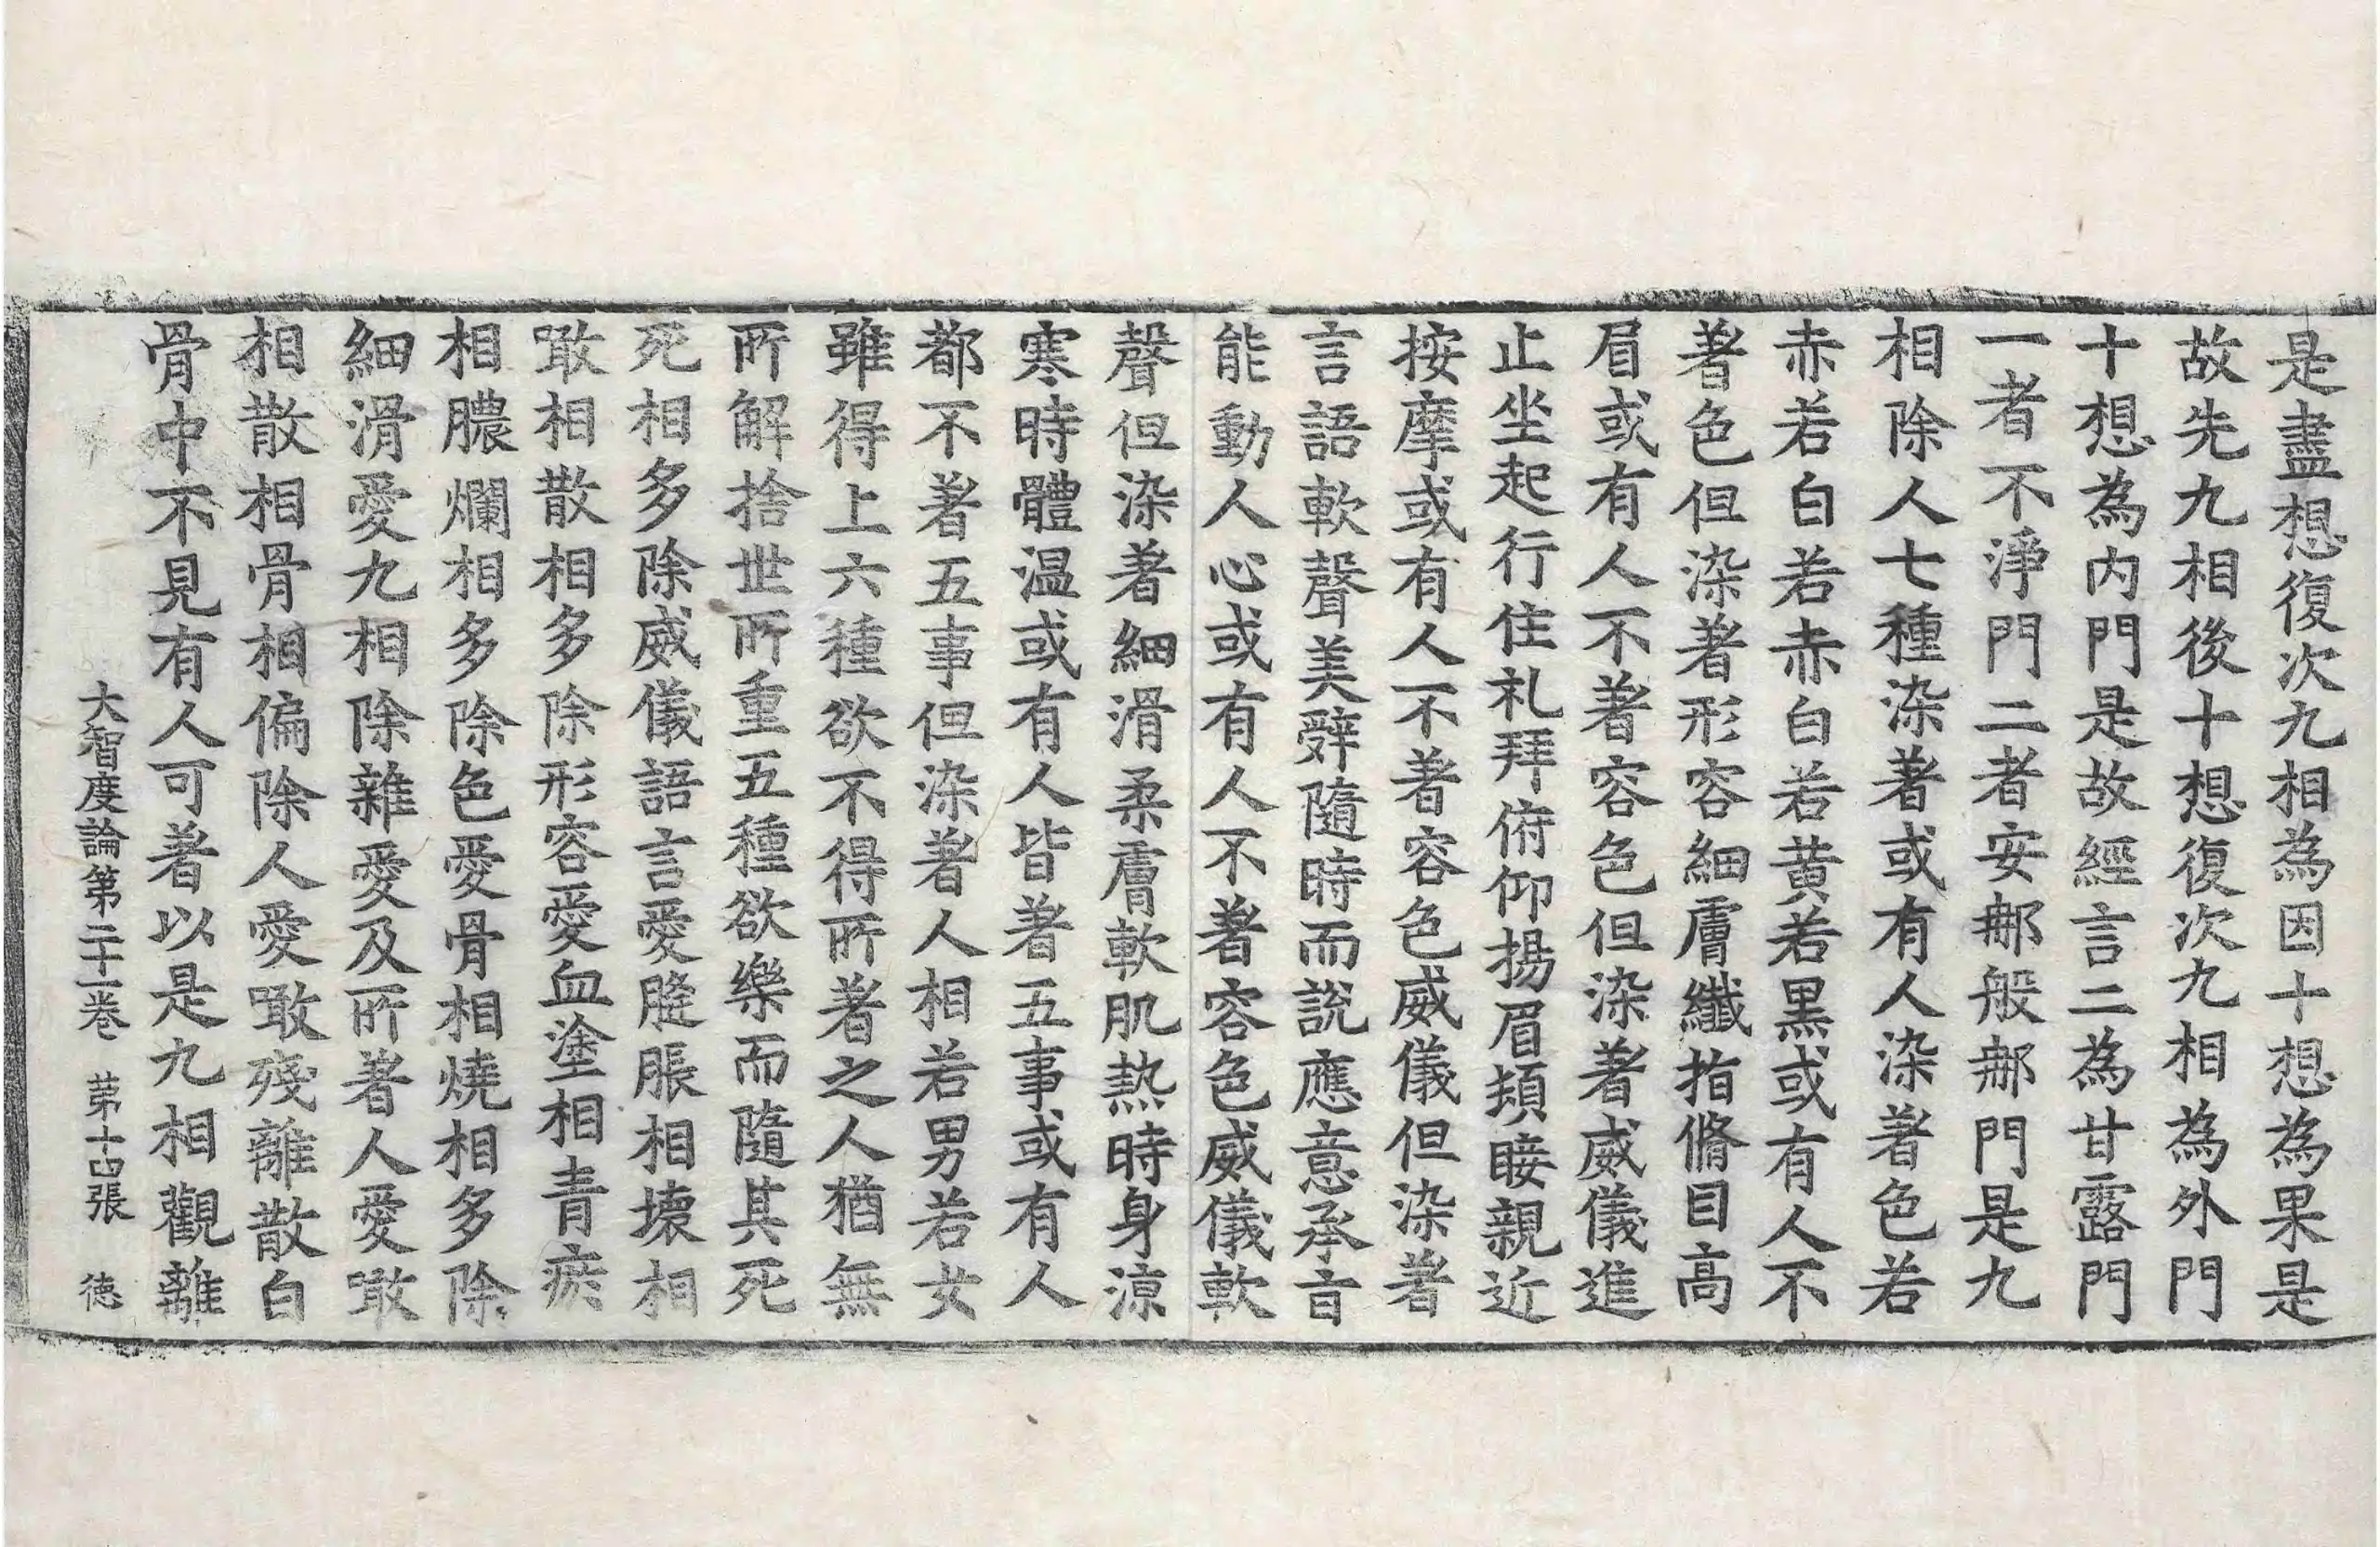 是盡想復次九相為因十想為果是
故先九相後十想復次九相為外門
十想為內門是故經言二為甘露門
一者不淨門二者安那般那門是九
相除人七種染著或有人染著色若
赤若白若赤白若黃若黑或有人不
著色但染著形容細膚纖指脩目高
眉或有人不著容色但染著威儀進
止坐起行住礼拜俯仰揚眉頓睫親近
按摩或有人不著容色威儀但染著
言語軟聲美辭隨時而說應意承旨
能動人心或有人不著容色威儀軟
聲但染著細滑柔膚軟肌熱時身涼
寒時體温或有人皆著五事或有人
都不著五事但染著人相若男若女
雖得上六種欲不得所著之人猶無
所解捨世所重五種欲樂而隨其死
死相多除威儀語言愛膖脹相壞相
噉相散相多除形容愛血塗相青瘀
相膿爛相多除色愛骨相燒相多除
細滑愛九相除雜愛及所著人愛噉
相散相骨相偏除人愛噉殘離散白
骨中不見有人可著以是九相觀離
大智度論第二十一卷 第十四張 德